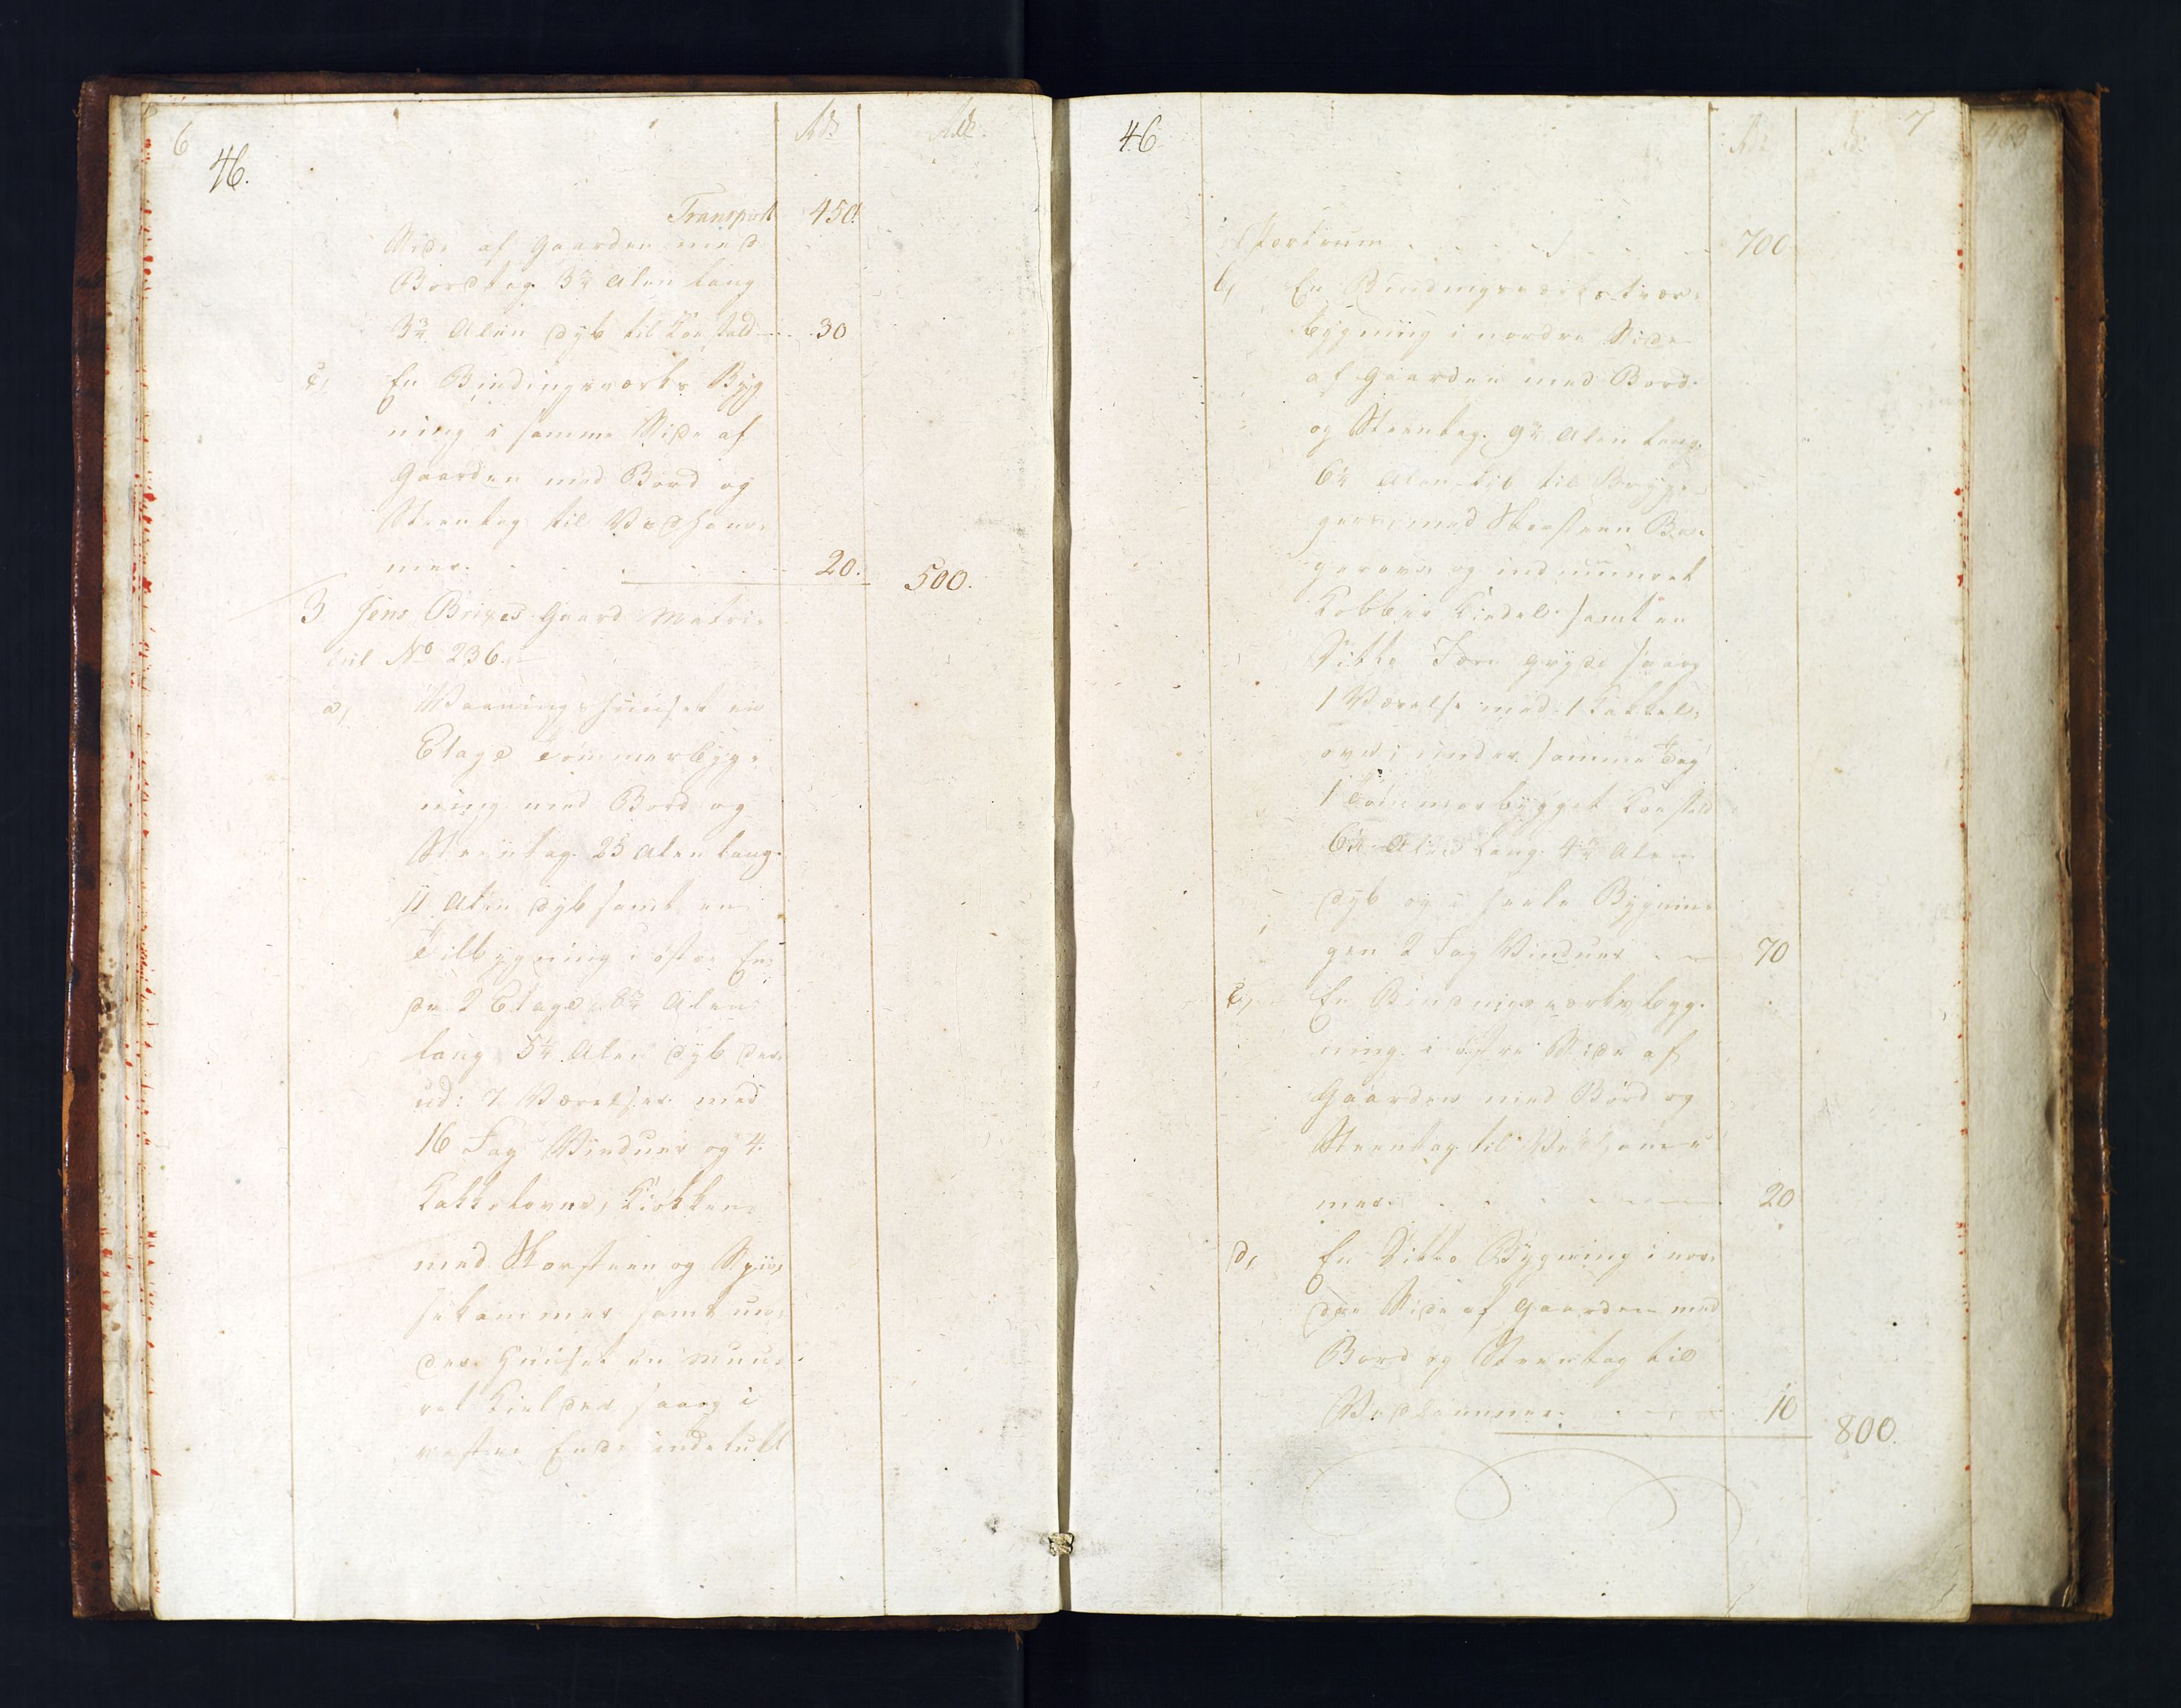 6
46.
Rd. Rd.
Transport 450.
Side af Gaarden med
Bordtag. 3¾ Alen lang
3¾ Alen dyb til Koestald 30
c, En Bindingsværks Byg
ning i samme Side af
Gaarden med Bord og
Steentag til Vedskam-
mer. 20. 500.
3 Jens Brixes Gaard Matri-
kul No 236.
a, Vaaningshuuset en
Etage Tømmerbyg-
ning med Bord og
Steentag. 25 Alen lang.
11 Alen dyb samt en
Tilbygning i østre En-
de 2 Etage Alen
lang 5¼ Alen dyb der-
ud: 7 Værelser med
16 Fag Vinduer og 4.
Kakkelovne, Kiøkken
med Skorsteen og Spii-
sekammer samt un-
der Huuset en muu-
ret Kielder saaog i
vestre Ende indelukt
46
7
Rd. Rd.
Portrum 700
b, En Bindingsværks Tvær-
bygning i nordre Side
af Gaarden med Bord-
og Steentag. 9¾ Alen lang.
6¼ Alen dyb til Brygger-
med Skorsteen Ba-
gerovn og indmuuret
Kobber Kiedel samt en
Ditto Jern gryde saaog
1 Værelse med 1 Kakkel-
ovn; under samme Tag
1 Tømmerbygget Koestald
6¼ Alen lang 4¾ Alen
dyb og i heele Bygnin-
gen 2 Fag Vinduer 70
c, En Bindingsværksbyg-
ning i østre Side af
Gaarden med Bord og
Steentag til Vedkam-
mer. 20
d, En Ditto Bygning i nor-
dre Side af Gaarden med
Bord og Steentag til
Vedkammer 10 800.
463